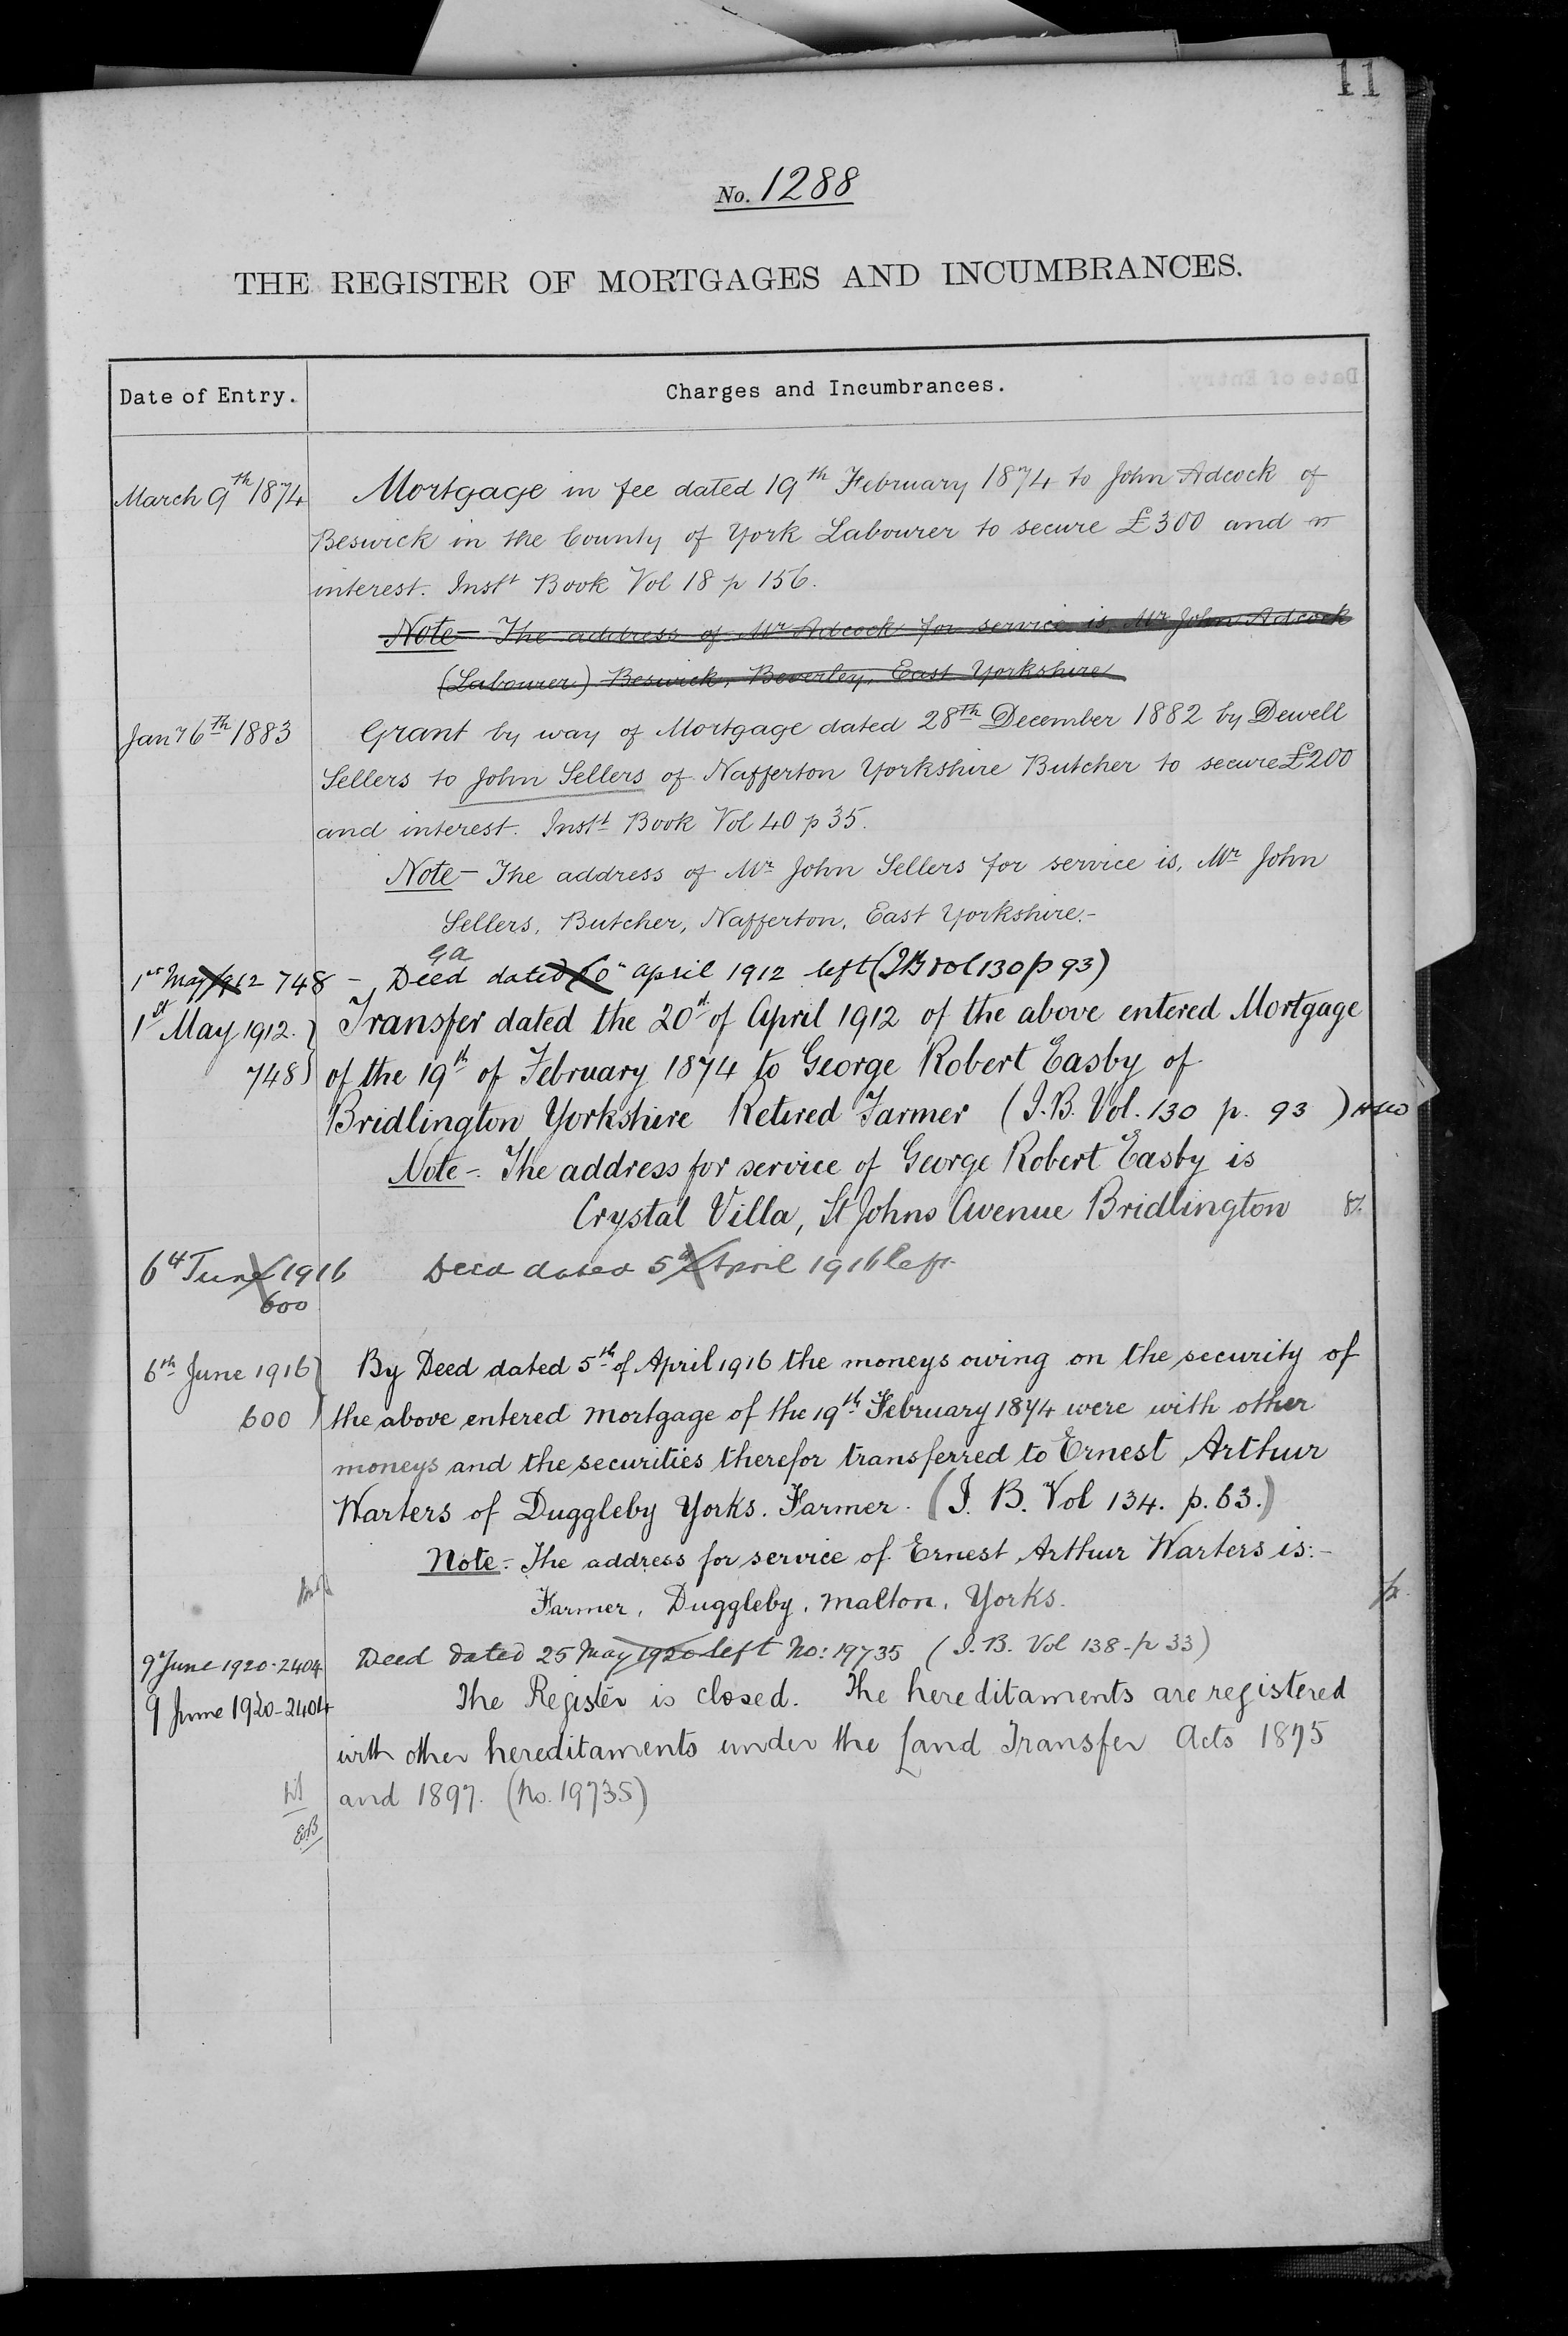 11
No. 1288
THE REGISTER OF MORTGAGES AND INCUMBRANCES.
Date of Entry.
Charges and Incumbrances.
March 9th 1874 Mortgage in fee dated 19th February 1874 to John Adcock of
Beswick in the County of York Labourer to secure £300 and
interest. Instt Book Vol 18 p 156.
Note- The address of Mr Adcock for service is, Mr John Adcock
(Labourer) Beswick, Beverley, East Yorkshire
Jany 6th 1883 Grant by way of Mortgage dated 28th December 1882 by Dewell
Sellers to John Sellers of Nafferton Yorkshire Butcher to secure £200
and interest. Instt Book Vol 40 p 35.
Note- The address of Mr John Sellers for service is, Mr John
Sellers, Butcher, Nafferton, East Yorkshire.-
1st May 1912 748 - Deed dated April 1912 left (IB Vol 130 p 93)
1st May 1912. Transfer dated the 20th of April 1912 of the above entered Mortgage
748 of the 19th of February 1874 to George Robert Easby of
Bridlington Yorkshire Retired Farmer (I.B. Vol. 130 p. 93)
Note-. The address for service of George Robert Easby is
Crystal Villa, St Johns Avenue Bridlington
6th June 1916 Deed dated 5th April 1916 left
600
6th June 1916 By Deed dated 5th of April 1916 the moneys owing on the security of
600 the above entered mortgage of the 19th February 1874 were with other
moneys and the securities therefor transferred to Ernest Arthur
Warters of Duggleby Yorks. Farmer. (I. B. Vol 134. p. 63.)
Note:- The address for service of Ernest Arthur Warters is:-
Farmer, Duggleby, Malton, Yorks.
9th June 1920-2404 Deed dated 25 May 1920 left No: 19735 (I.B. Vol 138-p 33)
9 June 1920-2404 The Register is closed. The hereditaments are registered
with other hereditaments under the Land Transfer Acts 1875
and 1897. (No. 19735)
EB